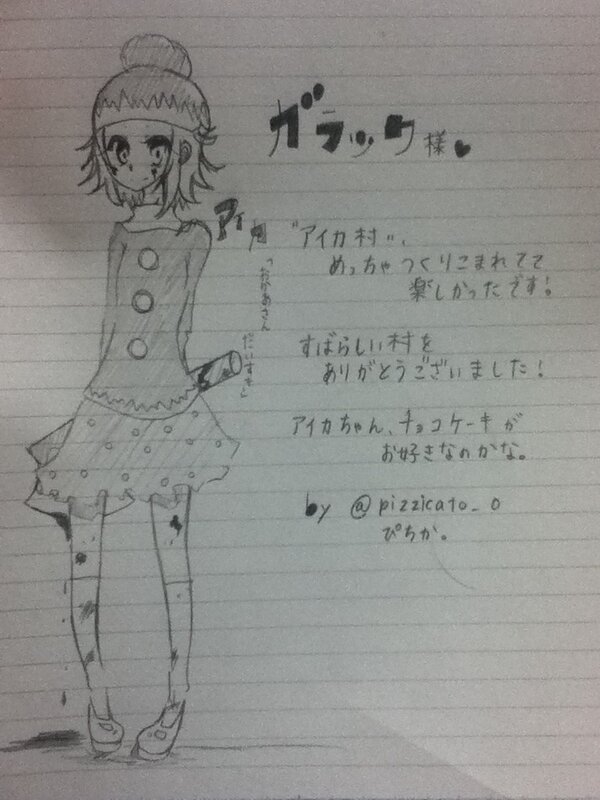 ガラック様♥
アイカ
"アイカ村"、
めっちゃつくりこまれてて
楽しかったです!
「おかあさん
だいすき」
すばらしい村を
ありがとうございました!
アイカちゃん、チョコケーキが
お好きなのかな。
by @pizzicato_o
ぴちか。